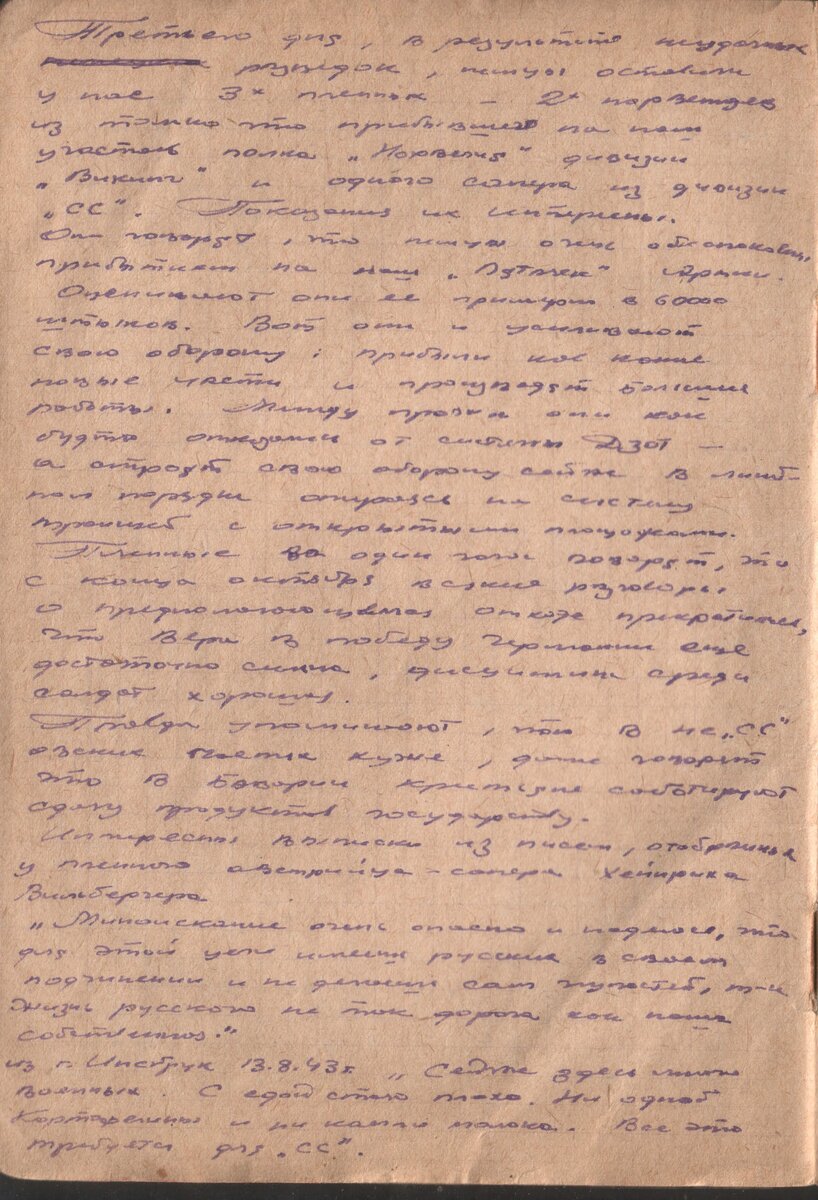 Третьего дня, в результате неудачных
разведок, немцы оставили
у нас 3х пленных – 2х норвежцев
из только что прибывшего на наш
участок полка „Норвегия" дивизии
„Викинг" и одного сапера из дивизии
„СС". Показания их интересны.
Они говорят, что немцы очень обеспокоены
прибытием на наш „Пятачек" Армии.
Оценивают они ее примерно в 60000
штыков. Вот они и усиливают
свою оборону: прибыли кое какие
новые части и производят большие
работы. Между прочим они как
будто отказались от системы Дзот –
а строят свою оборону сейчас в линей-
ном порядке опираясь на систему
траншей с открытыми площадками.
Пленные в один голос говорят, что
с конца октября всякие разговоры
о предполагающемся отходе прекратились,
что вера в победу Германии еще
достаточно сильна, дисциплина среди
солдат хорошая.
Правда упоминают, что в не „СС"
овских частях хуже, даже говорят
что в Баварии крестьяне саботируют
сдачу продуктов государству.
Интересны выписки из писем, отобранных
у пленного австрийца-сапера Хейнриха
Вильбергера
„Миноискание очень опасно и надеюсь, что
для этой цели имеешь русских в своем
подчинении и не делаешь сам глупостей, т-к
жизнь русского не так дорога как наша
собственная."
из г. Инсбрук 13.8.43г. „Сейчас здесь много
военных. С едой стало плохо. Ни одной
картофелины и ни капли молока. Все это
требуется для „СС".